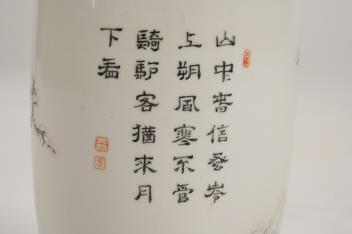 山中春信發岑
上朔風寒不管
騎驢客猶來月
下看